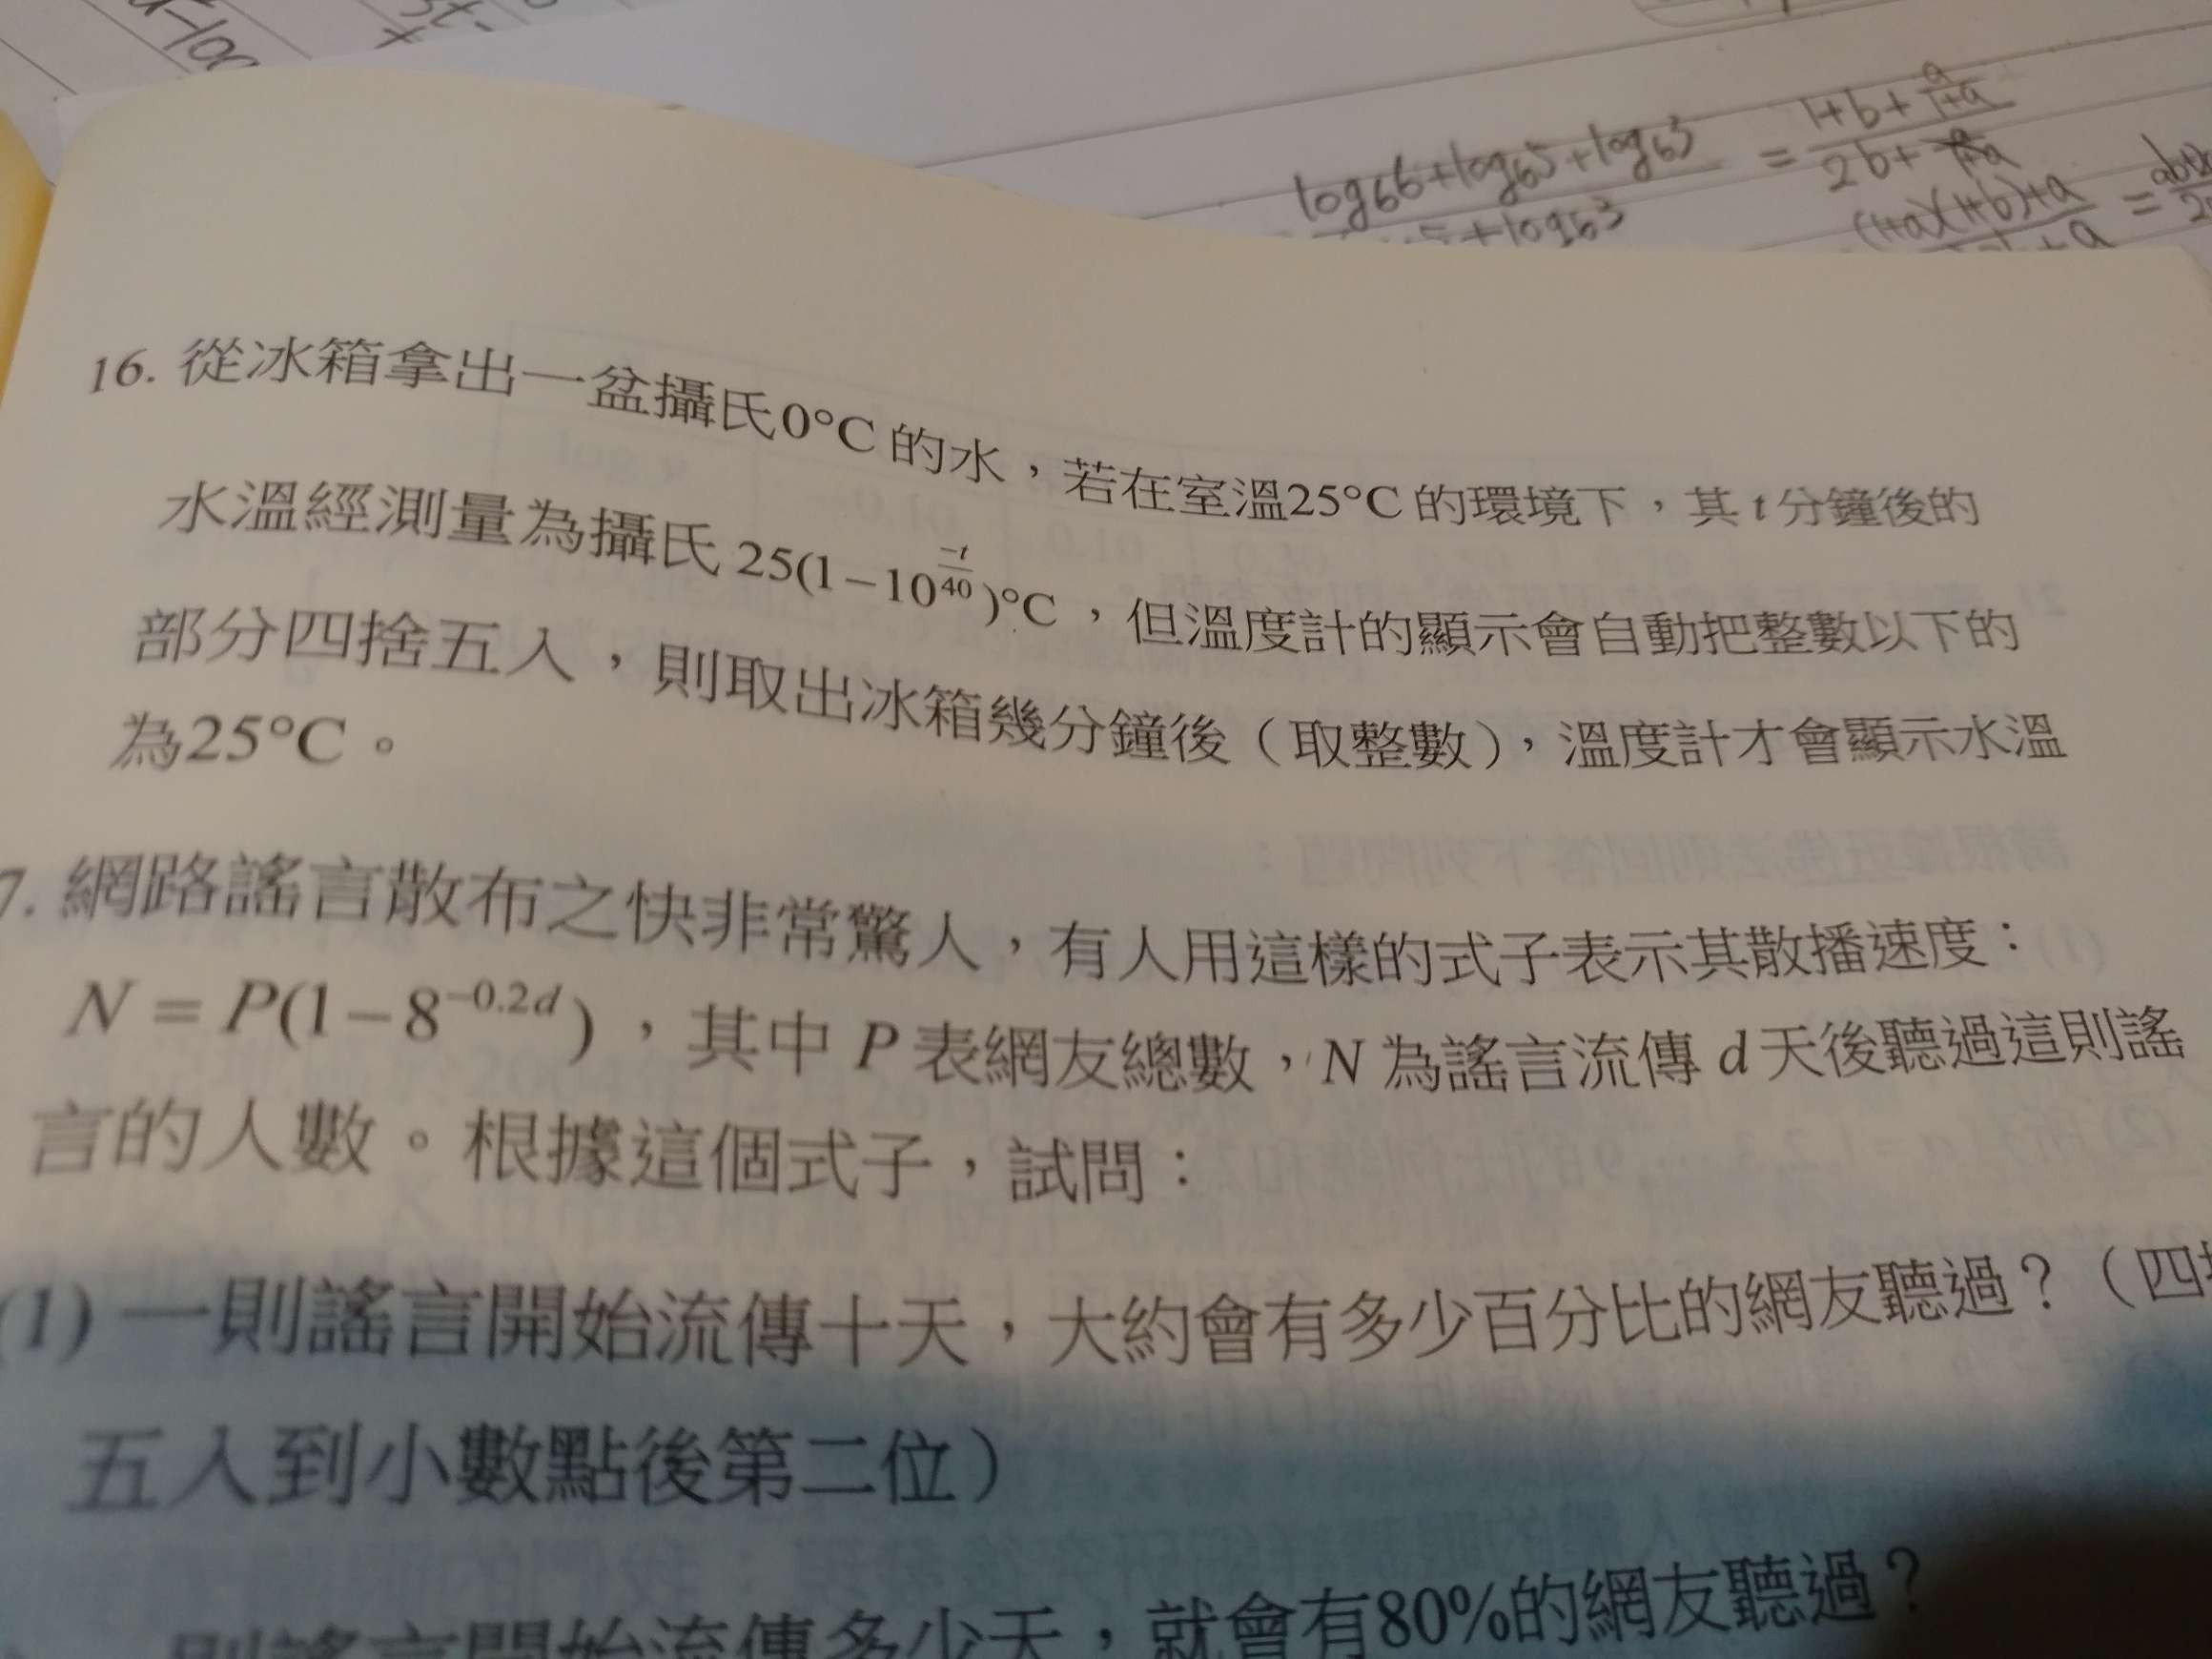 log₆6+log₆5+log₆3 = (1+b+a/(1+a))/
+log₆3
16. 從冰箱拿出一盆攝氏0°C 的水，若在室溫25°C 的環境下，其 t 分鐘後的
水溫經測量為攝氏 25(1−10^(−t/40))°C ，但溫度計的顯示會自動把整數以下的
部分四捨五入，則取出冰箱幾分鐘後（取整數），溫度計才會顯示水溫
為25°C。
7. 網路謠言散布之快非常驚人，有人用這樣的式子表示其散播速度：
N = P(1−8^(−0.2d))，其中 P 表網友總數，N 為謠言流傳 d 天後聽過這則謠
言的人數。根據這個式子，試問：
(1) 一則謠言開始流傳十天，大約會有多少百分比的網友聽過？（四
五入到小數點後第二位）
則謠言開始流傳多少天，就會有80%的網友聽過？